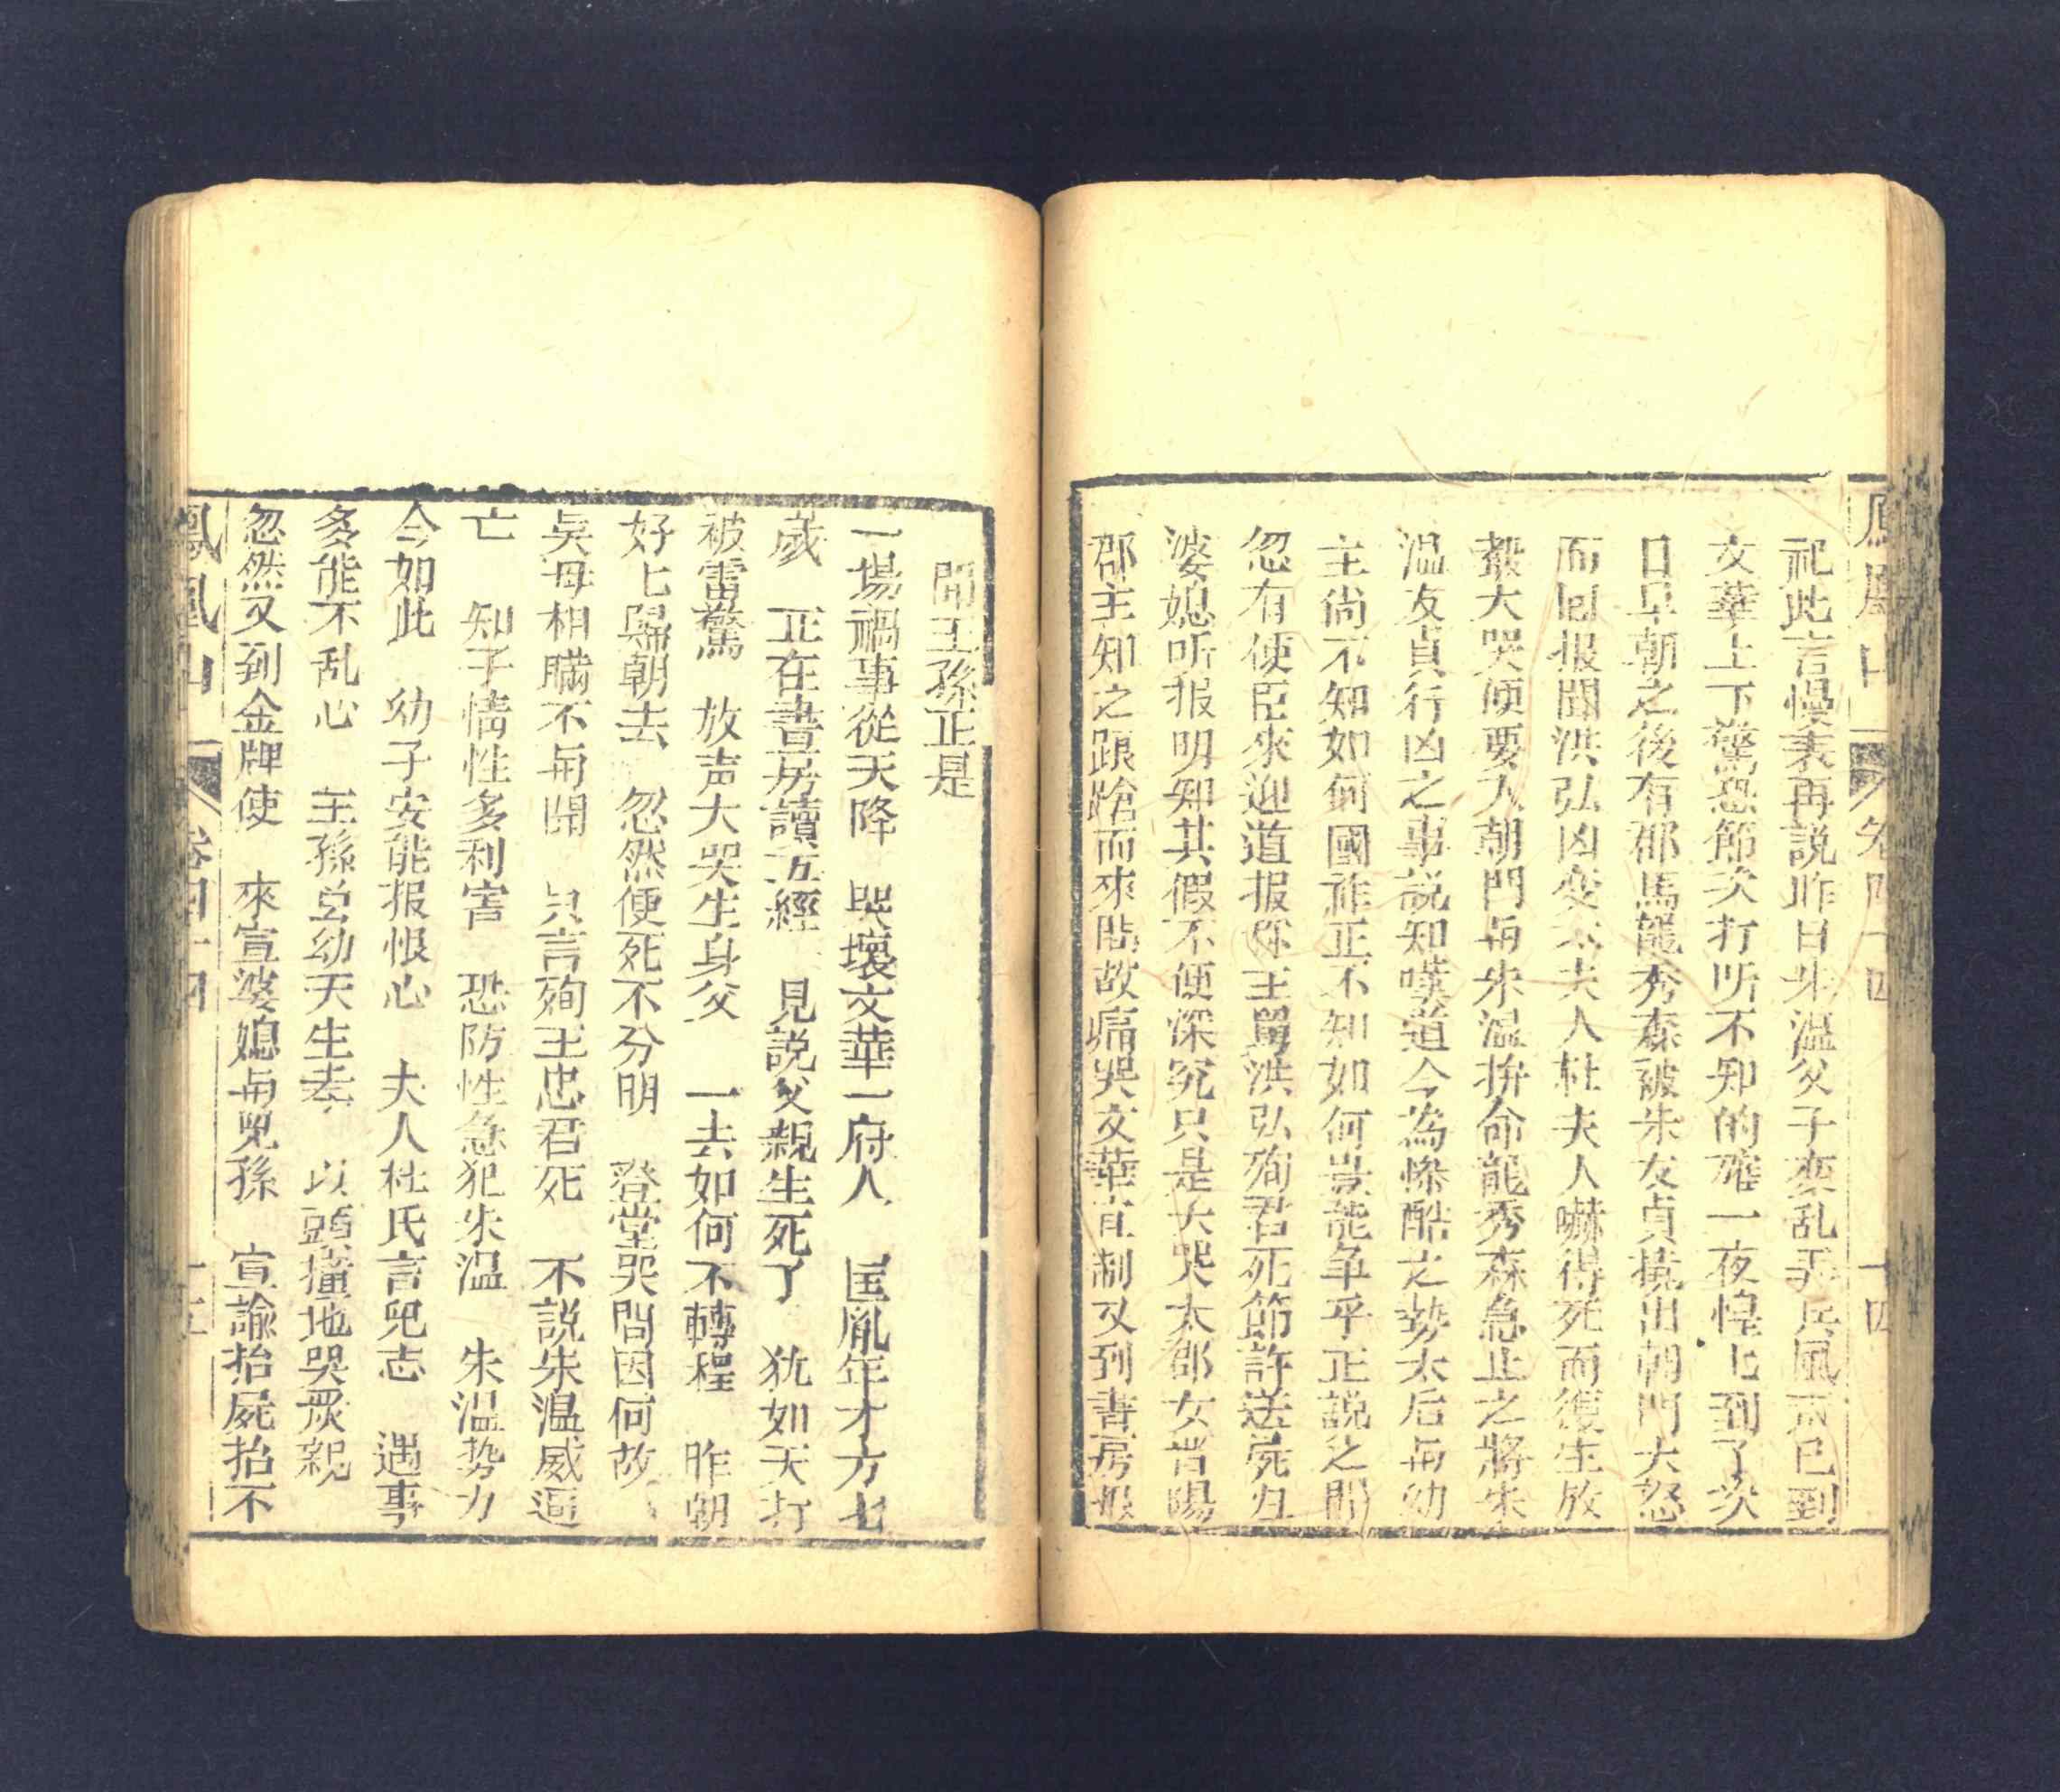 鳳凰山 卷四十四 十四
祀此言慢表再說昨日朱温父子变乱弄兵風声已到
文華上下驚恐節次打听不知的確一夜惶七到了次
日早朝之後有郡馬龍秀森被朱友貞擒出朝門大怒
而回报聞洪弘凶变太夫人杜夫人嚇得死而復生放
聲大哭便要入朝門与朱温拚命龍秀森急止之將朱
温友貞行凶之事説知嘆道今為慘酷之势太后与幼
主尚不知如何國祚正不知如何豈能争乎正説之間
忽有使臣來迎道报郡主駕洪弘殉君死節許送屍归
婆媳听报明知其假不便深究只是大哭太郡女昔陽
郡主知之踉蹌而來臨故痛哭文華宜制又到書房报
聞王孫正是
一場禍事從天降 哭壞文華一府人 匡胤年才方七
歲 正在書房讀五經 見説父親生死了 犹如天打
被雷驚 放声大哭生身父 一去如何不轉程 昨朝
好七歸朝去 忽然便死不分明 登堂哭問因何故
吳母相瞞不与開 只言殉主忠君死 不説朱温威逼
亡 知子情性多利害 恐防性急犯朱温 朱温势力
今如此 幼子安能报恨心 夫人杜氏言兒志 遇事
多能不乱心 王孫总幼天生孝 以頭撞地哭眾親
忽然又到金牌使 來宣婆媳与兒孫 宣諭抬屍抬不
鳳凰山 卷四十四 十五